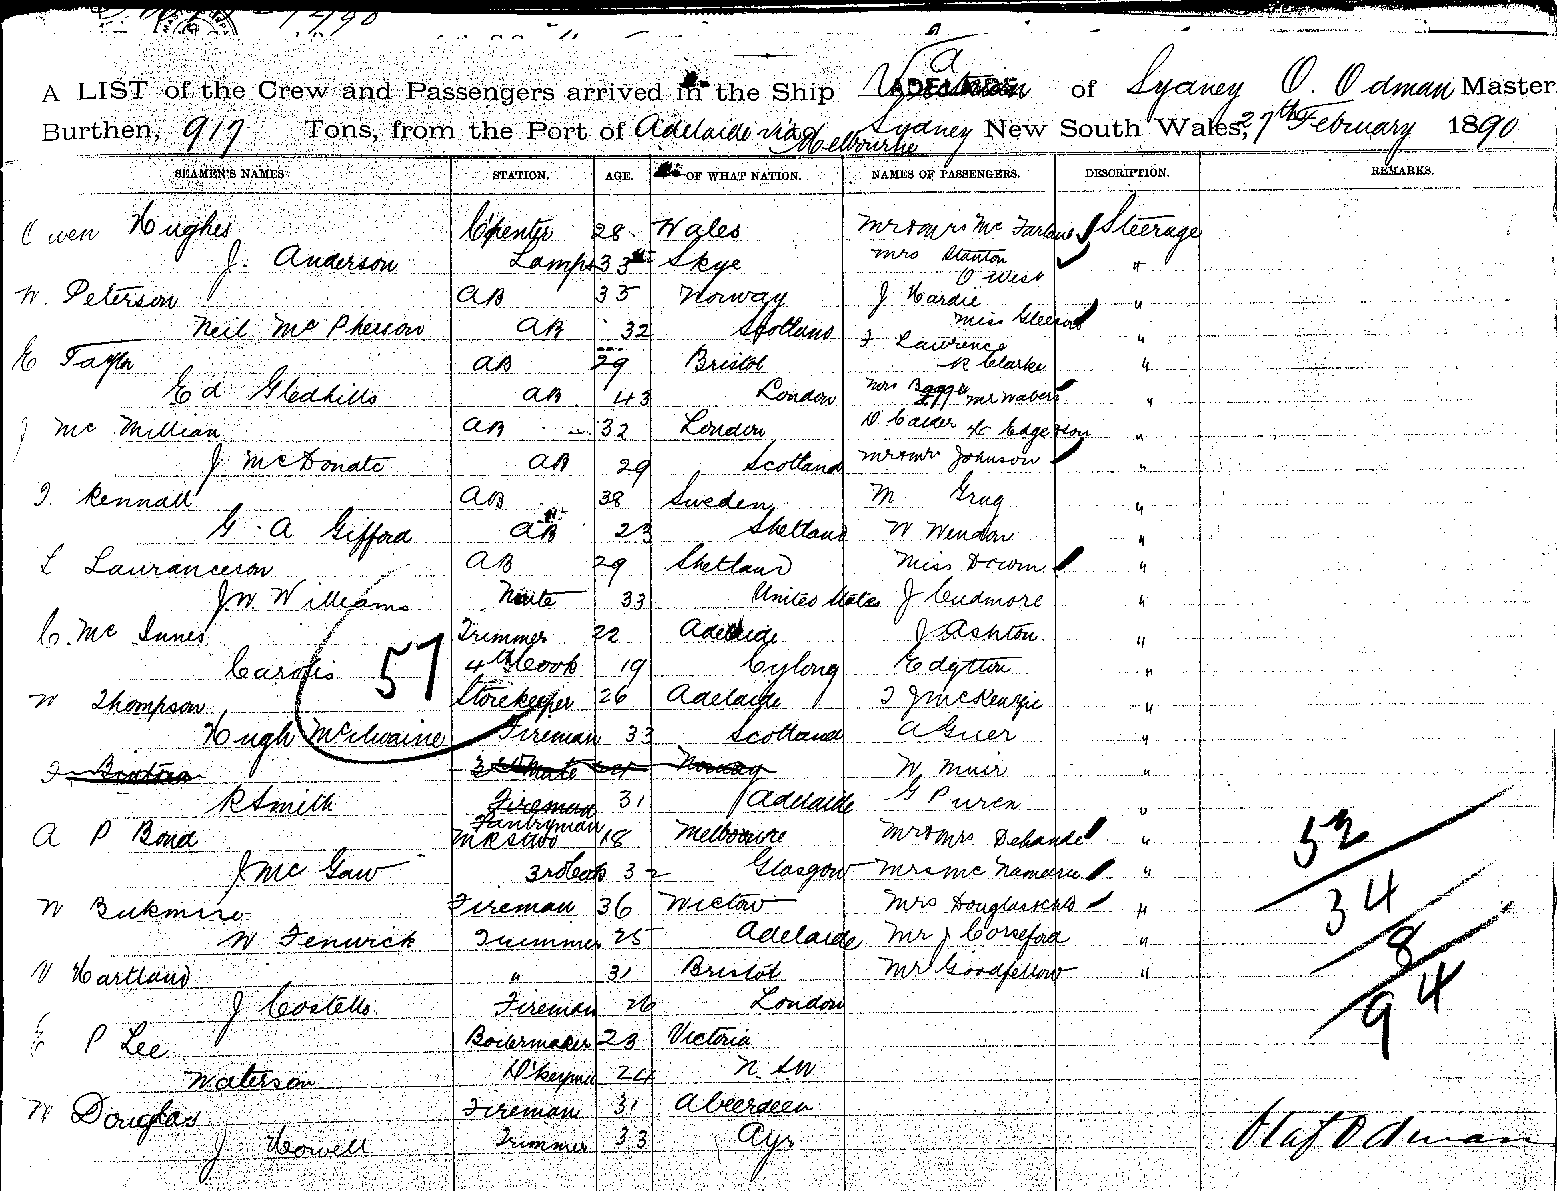 1890
A LIST of the Crew and Passengers arrived in the Ship ADELAIDE of Sydney O. Odman Master
Burthen, 917 Tons, from the Port of Adelaide via Melbourne Sydney New South Wales, 27th February 1890
SEAMEN'S NAMES STATION. AGE. OF WHAT NATION. NAMES OF PASSENGERS. DESCRIPTION. REMARKS.
Owen Hughes C'penter 28 Wales Mr & Mrs McFarlane Steerage
J. Anderson Lamps 33 Skye Mrs Stanton "
O West
W. Peterson AB 35 Norway J Hardie "
Neil McPherson AB 32 Scotland Miss Gleeson "
E Taylor AB 29 Bristol F Lawrence
R Clarke "
Ed Gledhills AB 43 London Mrs "
J McMillian AB 32 London D Calder "
J McDonald AB 29 Scotland Mr & Mrs Johnson
AB 38 Sweden M "
G. A Gifford AB 23 Shetland W "
L Lauranceson AB 29 Shetland Miss "
J W. Williams Mate 33 United States J Cudmore "
C. McInnes Trimmer 22 Adelaide J Ashton "
4th Cook 19 Cylong Edgtton "
57
W Thompson Storekeeper 26 Adelaide J McKenzie "
Hugh McIlwaine Fireman 33 Scotland A Grier "
3rd Mate Norway W Muir "
R Smith Fireman 31 Adelaide G "
A P Bond Pantryman 18 Melbourne Mr & Mrs "
J McGaw 3rd Cook 32 Glasgow Mrs McNamara "
W Fireman 36 Mrs Douglas "
W Fenwick Trimmer 25 Adelaide Mr J "
Hartland " 31 Bristol Mr Goodfellow "
J Costello Fireman 26 London
P Lee Boilermaker 23 Victoria
Waterson D'keyman 24 N. SW
W Douglas Fireman 31 Aberdeen
J Howell Trimmer 33 Ayr
52
34
8
94
Olaf Odman